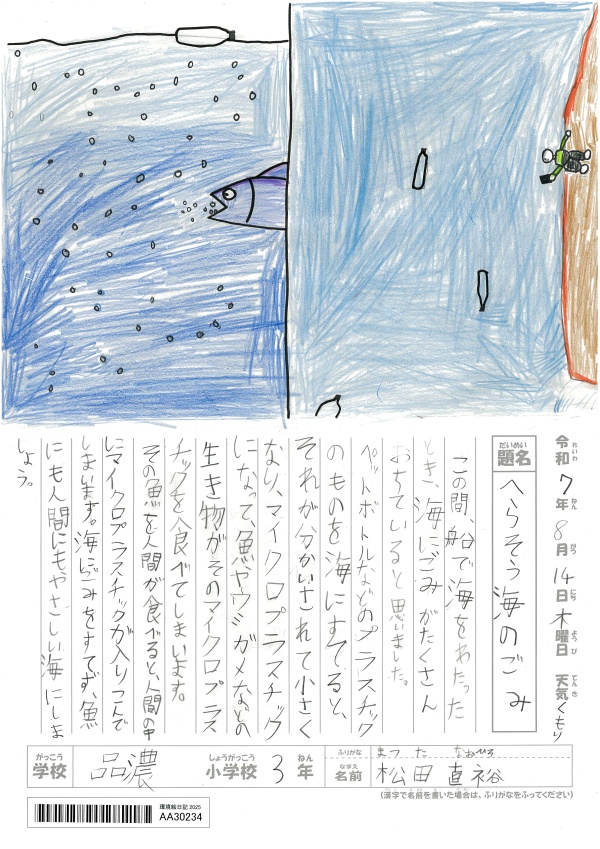 令和7年8月14日木曜日 天気くもり
れいわ ねん がつ にち ようび てんき
だいめい
題名 へらそう海のごみ
この間、船で海をわたった
とき、海にごみがたくさん
おちていると思いました。
ペットボトルなどのプラスチック
のものを海にすてると、
それが分かいされて小さく
なり、マイクロプラスチック
になって、魚やウミガメなどの
生き物がそのマイクロプラス
チックを食べてしまいます。
その魚を人間が食べると、人間の中
にマイクロプラスチックが入りこんで
しまいます。海にごみをすてず、魚
にも人間にもやさしい海にしま
しょう。
がっこう しょうがっこう ねん
学校 品濃 小学校 3年
ふりがな まつ た なおひろ
なまえ
名前 松田 直裕
(漢字で名前を書いた場合は、ふりがなをふってください)
環境絵日記 2025
AA30234